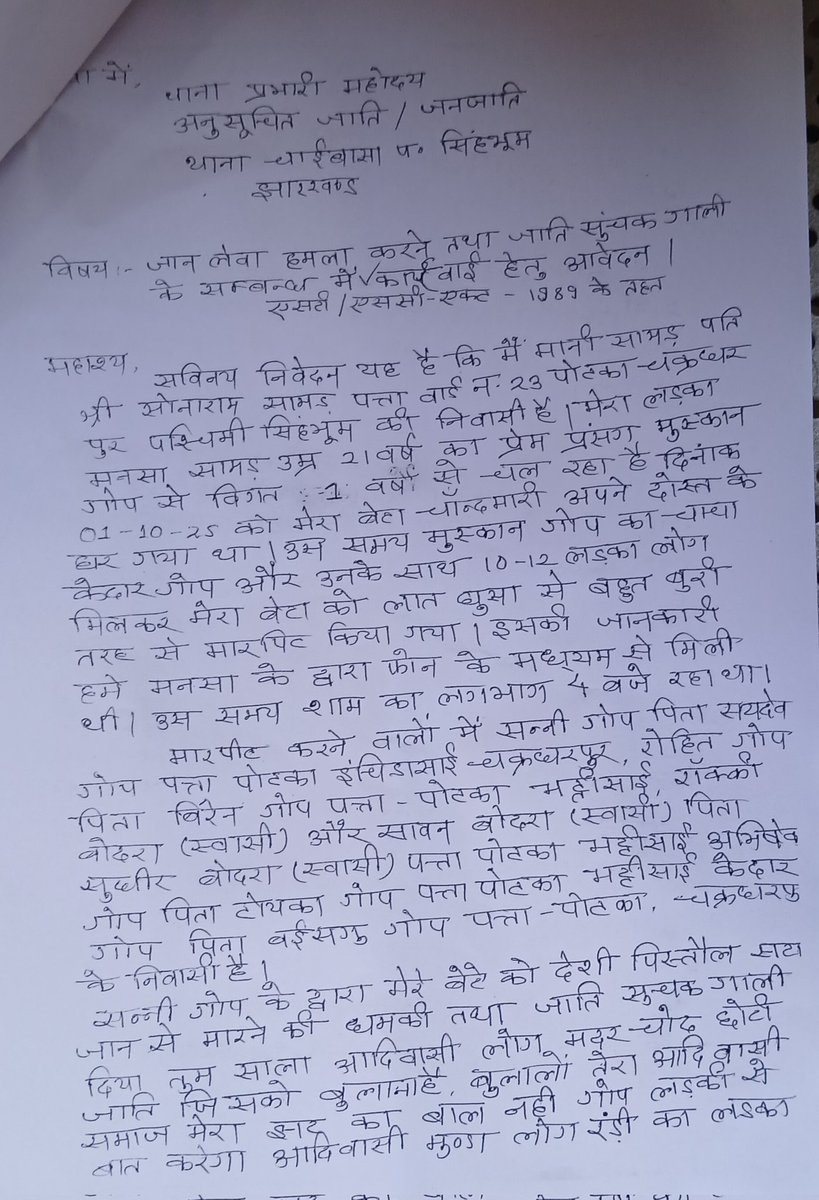 में,
थाना प्रभारी महोदय
अनुसूचित जाति / जनजाति
थाना चाईबासा प॰ सिंहभूम
झारखण्ड
विषय :- जान लेवा हमला करने तथा जाति सुंचक गाली
के सम्बन्ध में कार्यवाई हेतु आवेदन |
एसटी/एससी-एक्ट - 1989 के तहत
महाश्य,
सविनय निवेदन यह है कि मैं मानी सामड़ पति
श्री सोनाराम सामड़ पत्ता वार्ड न. 23 पोटका चक्रधर
पुर पश्चिमी सिंहभूम की निवासी है | मेरा लड़का
मनसा सामड़ उम्र 21 वर्ष का प्रेम प्रसंग मुस्कान
गोप से विगत 1 वर्षों से चल रहा है दिनांक
01-10-25 को मेरा बेटा चाँन्दमारी अपने दोस्त के
घर गया था | उस समय मुस्कान गोप का चाचा
केदार गोप और उनके साथ 10-12 लड़का लोग
मिलकर मेरा बेटा को लात घुसा से बहुत बुरी
तरह से मारपिट किया गया | इसकी जानकारी
हमे मनसा के द्वारा फोन के मध्यम से मिली
थी | उस समय शाम का लगभाग 4 बजे रहा था |
मारपीट करने वालों में सन्नी गोप पिता सयदेव
गोप पत्ता पोटका इंचिडासाई चक्रधरपुर, रोहित गोप
पिता बिरेन गोप पत्ता - पोटका भट्टीसाई, रॉक्की
बोदरा (स्वासी) और सावन बोदरा (स्वासी) पिता
सुधीर बोदरा (स्वासी) पत्ता पोटका भट्टीसाई अभिषेक
गोप पिता टोयका गोप पत्ता पोटका भट्टीसाई केदार
गोप पिता बईसगु गोप पत्ता - पोटका, चक्रधरपु
के निवासी है |
सन्नी गोप के द्वारा मेरे बेटे को देशी पिस्तौल सटा
जान से मारने की धमकी तथा जाति सुन्चक गाली
दिया तुम साला आदिवासी लोग मदर-चोद छोटी
जाति जिसको बुलानाहै, बुलालो तेरा आदिवासी
समाज मेरा झाट का बाल नही गोप लड़की से
बात करेगा आदिवासी मुण्डा लोग रंडी का लड़का